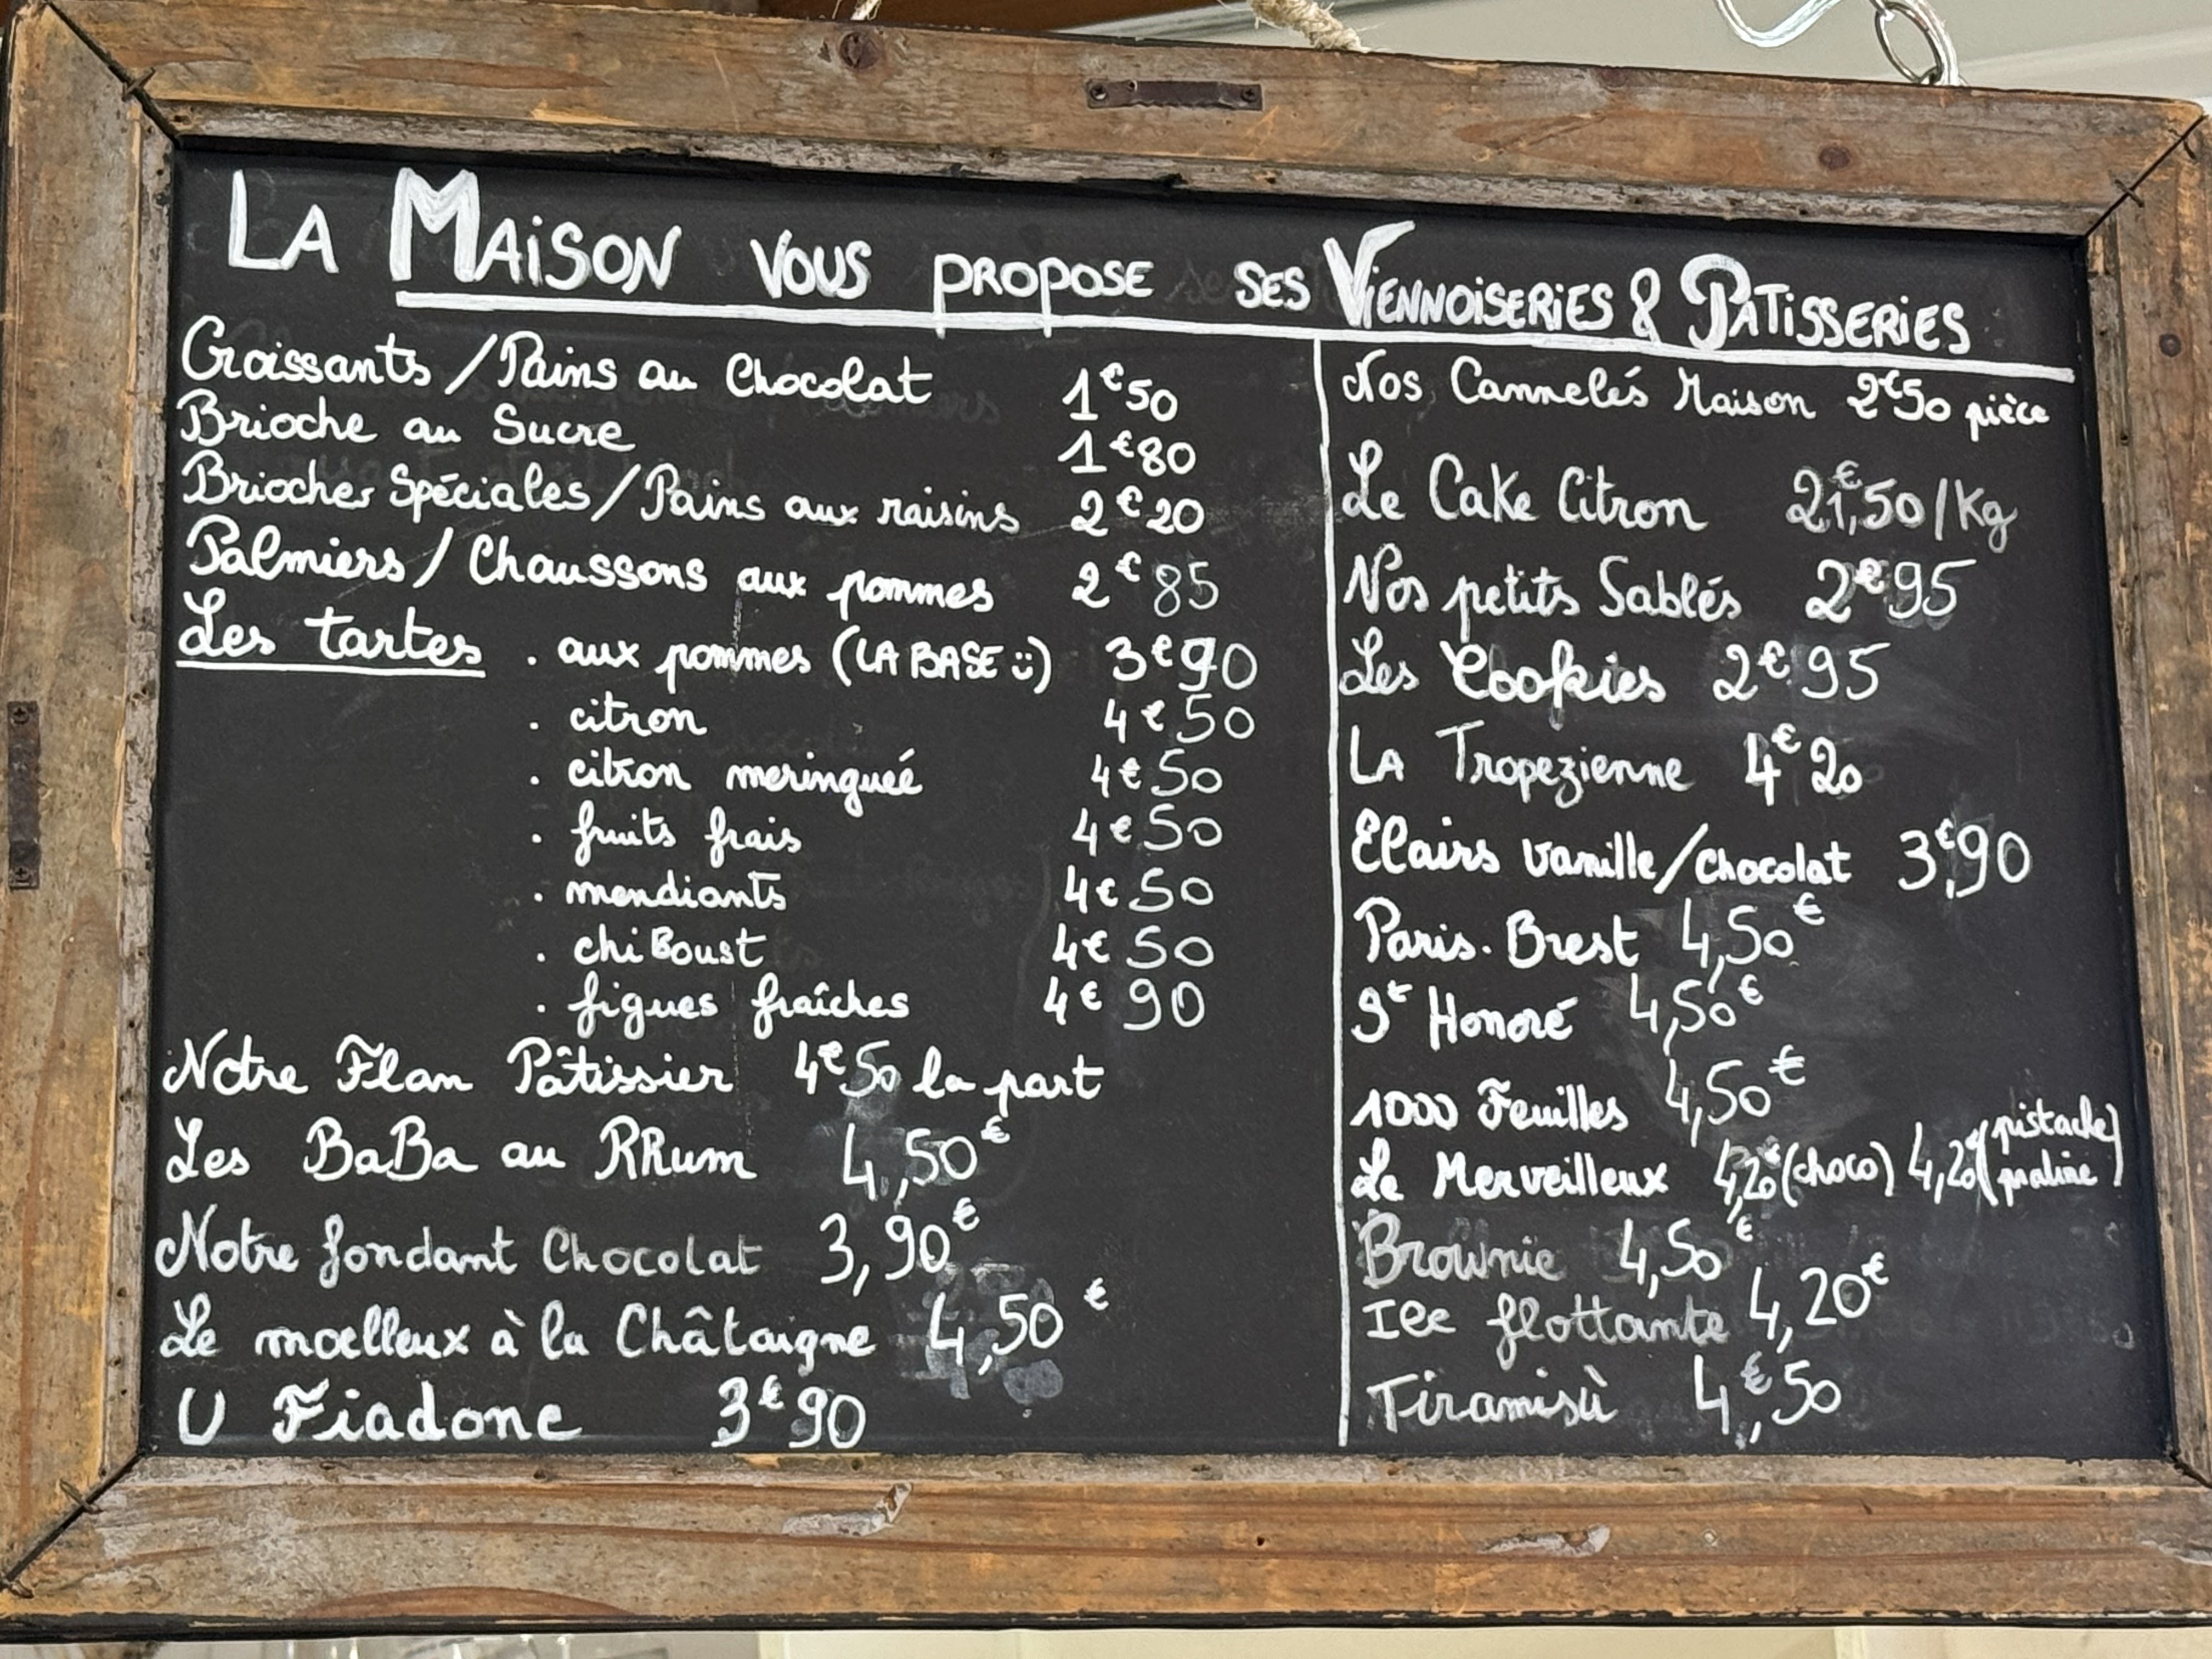 LA MAiSON VOUS PROPOSE SES ViENNOiSERiES & PATiSSERiES
Croissants / Pains au Chocolat 1€50
Brioche au Sucre 1€80
Brioches Spéciales / Pains aux raisins 2€20
Palmiers / Chaussons aux pommes 2€85
Les tartes . aux pommes (LA BASE ü) 3€90
. citron 4€50
. citron meringueé 4€50
. fruits frais 4€50
. mendiants 4€50
. chiBoust 4€50
. figues fraîches 4€90
Notre Flan Pâtissier 4€50 la part
Les BaBa au RHum 4,50€
Notre fondant Chocolat 3,90€
Le moelleux à la Châtaigne 4,50€
U Fiadone 3€90
Nos Cannelés Maison 2€50 pièce
Le Cake Citron 21€,50/Kg
Nos petits Sablés 2€95
Les Cookies 2€95
LA Tropezienne 4€20
Eclairs vanille/chocolat 3€,90
Paris.Brest 4,50€
St Honoré 4,50€
1000 Feuilles 4,50€
Le Merveilleux 4,20€ (choco) 4,20€ (pistache praline)
Brownie 4,50€
Ile flottante 4,20€
Tiramisù 4€,50